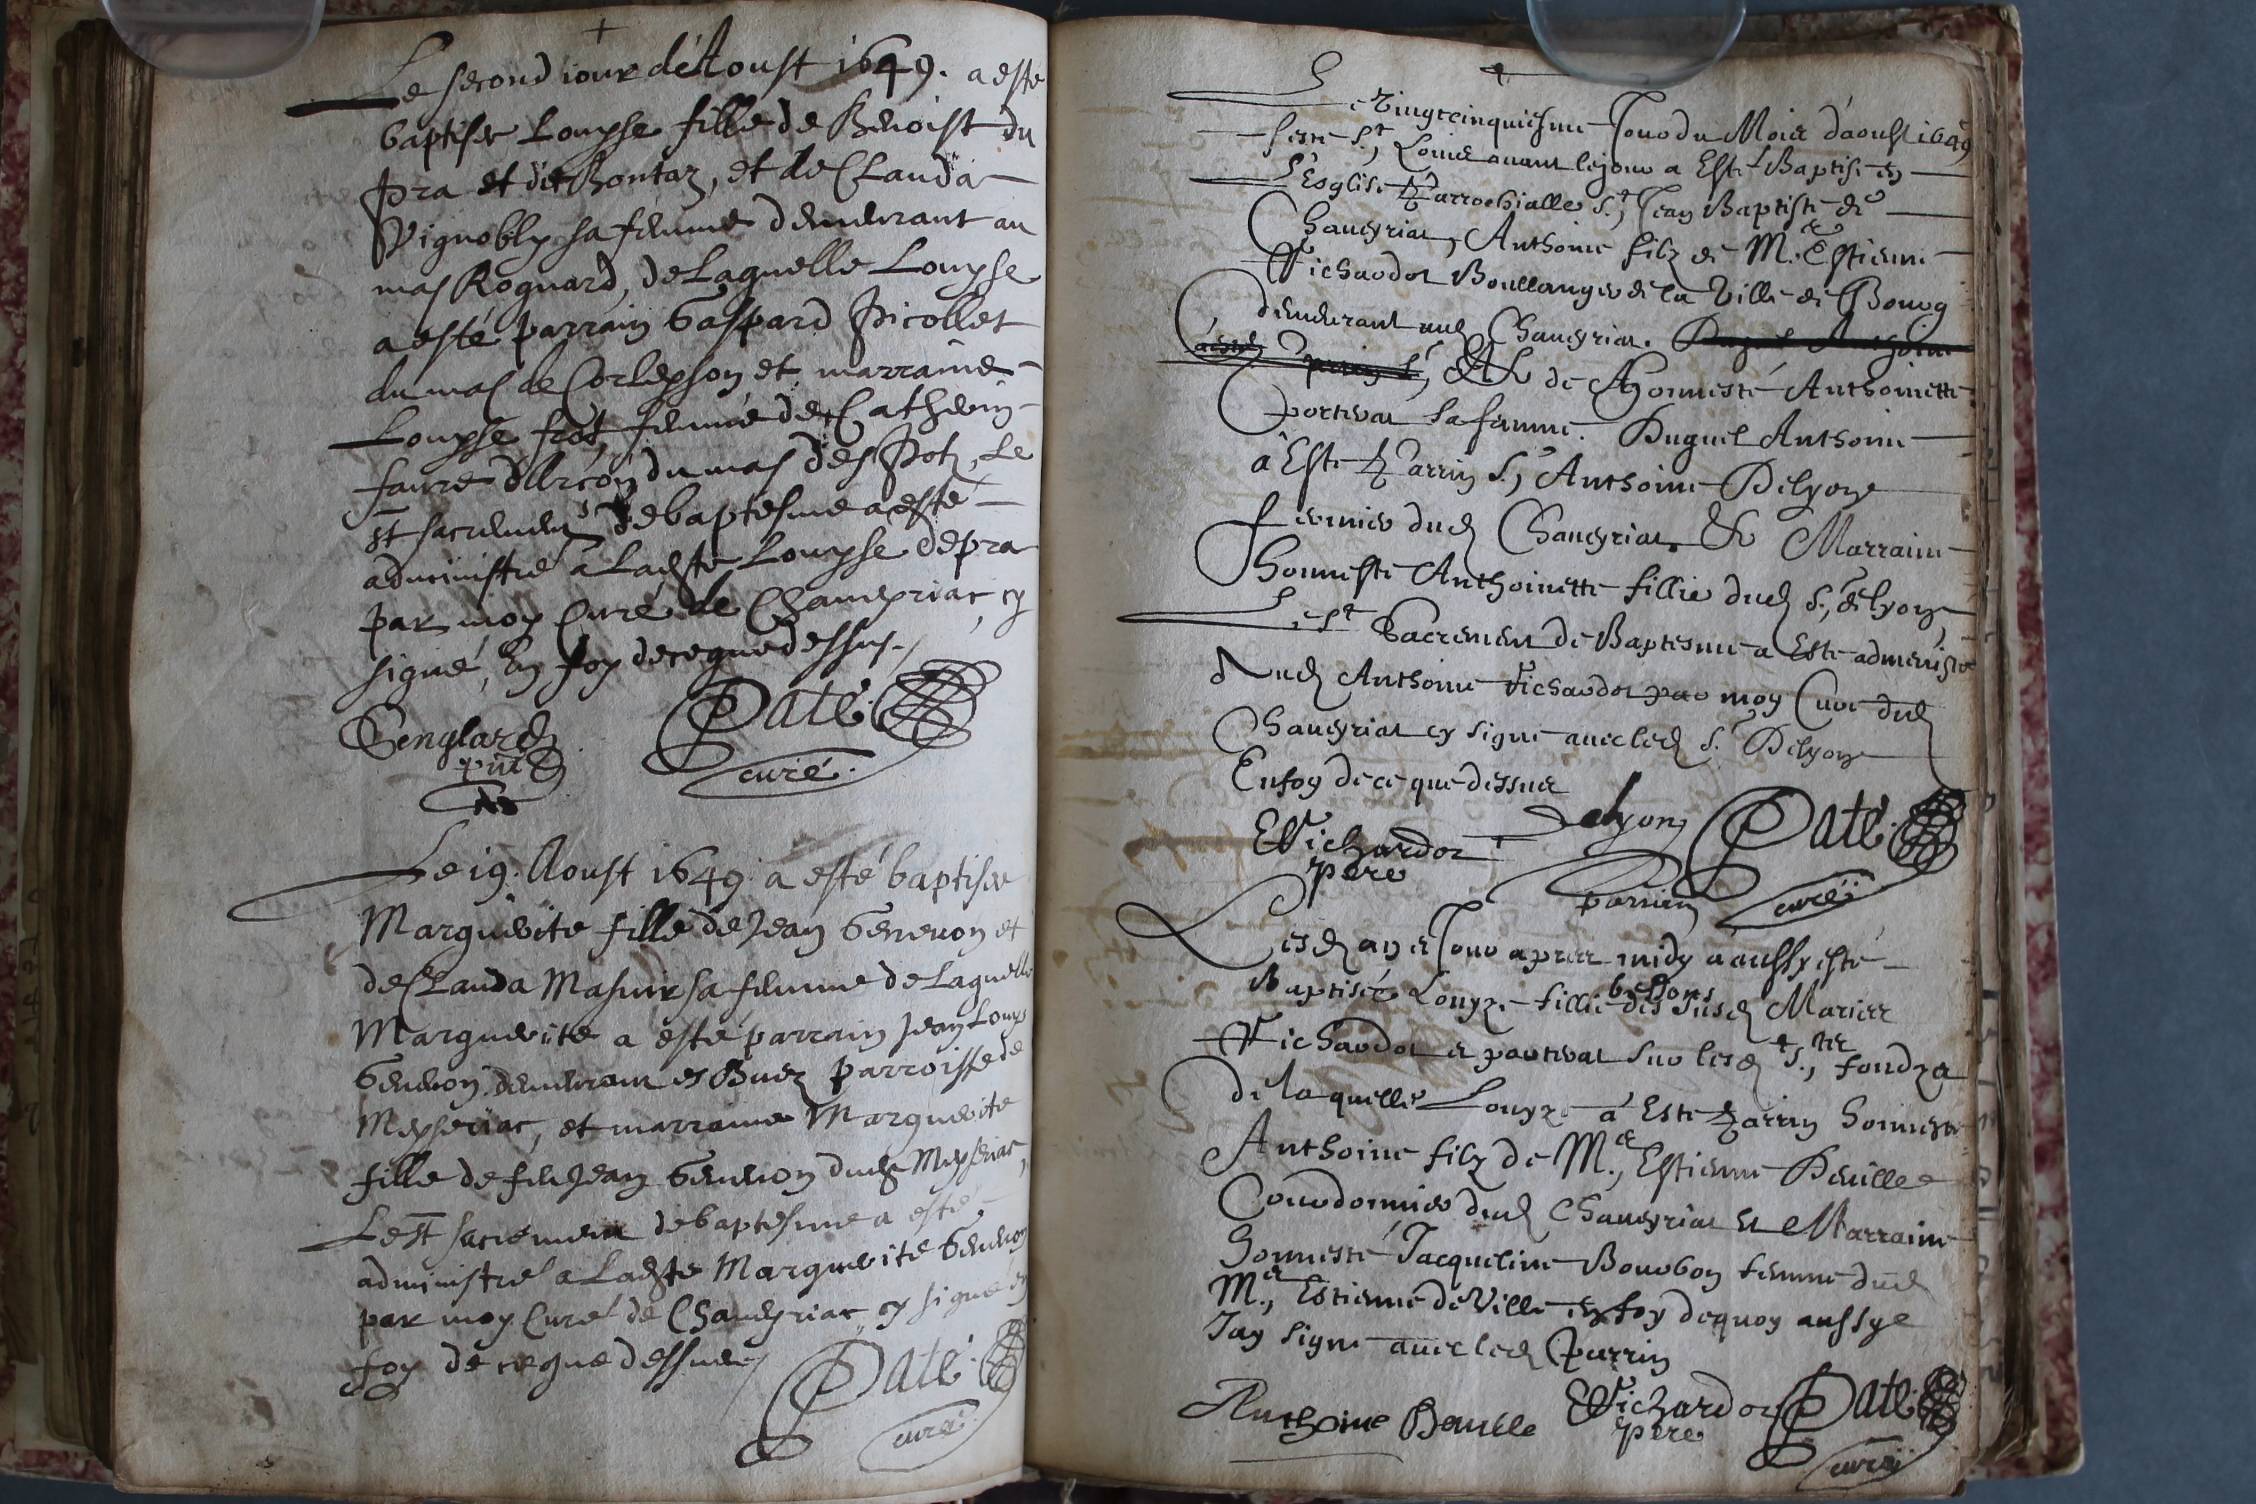 Le second iour dé Aoust 1649. a esté
baptisée Louyse fille de Benoist du
pra et dit Bontaz, et de Clauda
Vignobly sa femme demeurant au
mas Roguard, de laquelle Louyse
a esté parrain Gaspard Picollet
du mas de Corlesson et marraine
Louyse frot, femme de Catherin
faure d'Arcon du mas des Potz, Le
st sacrement de baptesme a esté
administré a Ladste Louyse depra
par moy Curé de Chaueyriac cy
signé, En foy de ce que dessus.
Genglard
pnt
Paté
curé
Le 19. Aoust 1649. a esté baptisée
Marguerite fille de Jean Geneuon et
de Clauda Masuir sa femme de Laquelle
Marguerite a esté parrain Jean Louys
Geneuon, demeurant es Buez parroisse de
Mezeriac, et marraine Marguerite
fille de feu Jean Geneuon dudt Mezeriac,
Le st sacrement de baptesme a esté
administré a Ladste Marguerite Geneuon
par moy Curé de Chaueyriac cy signé en
foy de ce que dessus
Paté
curé
Le vingt cinquiesme Jour du Mois d'aoust 1649
feste St, Louis auant le jour a Esté Baptisé en
L'Esglise Parrochialle St, Jean Baptiste de
Chaueyriat, Anthoine filz de M.e Estienne
Vichardot Boullanger de la Ville de Bourg
demeurant aud Chaueyriat. Duquel Anthoine
a esté
parrin S, & de Honnesté Anthoinette
portevat sa femme. Duquel Anthoine
a Esté Parrin S., Anthoine Delyon
fermier dud Chaueyriat & Marraine
Honneste Anthoinette fillie dud S., delyon,
Le st Sacrement de Baptesme a Esté administré
Aud Anthoine Vichardot par moy Curé dud
Chaueyriat cy signé auec led S. Delyon
En foy de ce que dessus
E Vichardot
père
Delyon
parrin
Paté
curé
Lesd an et Jour apres midy a aussy esté
bessons
Baptisée Louyze fillie des susd Mariez
Vichardot et portevat sur lesd sts fondz et
de laquelle Louyze a Esté Parrin honneste
Anthoine filz de M.e, Estienne Deuille
Courdonnier dud Chaueyriat et Marraine
honnesté Jacqueline Bourbon femme dud
M.e, Estienne de Ville en foy de quoy aussy
Jay signé auec led Parrin
Anthoine Deuille
E Vichardot
père
Paté
curé